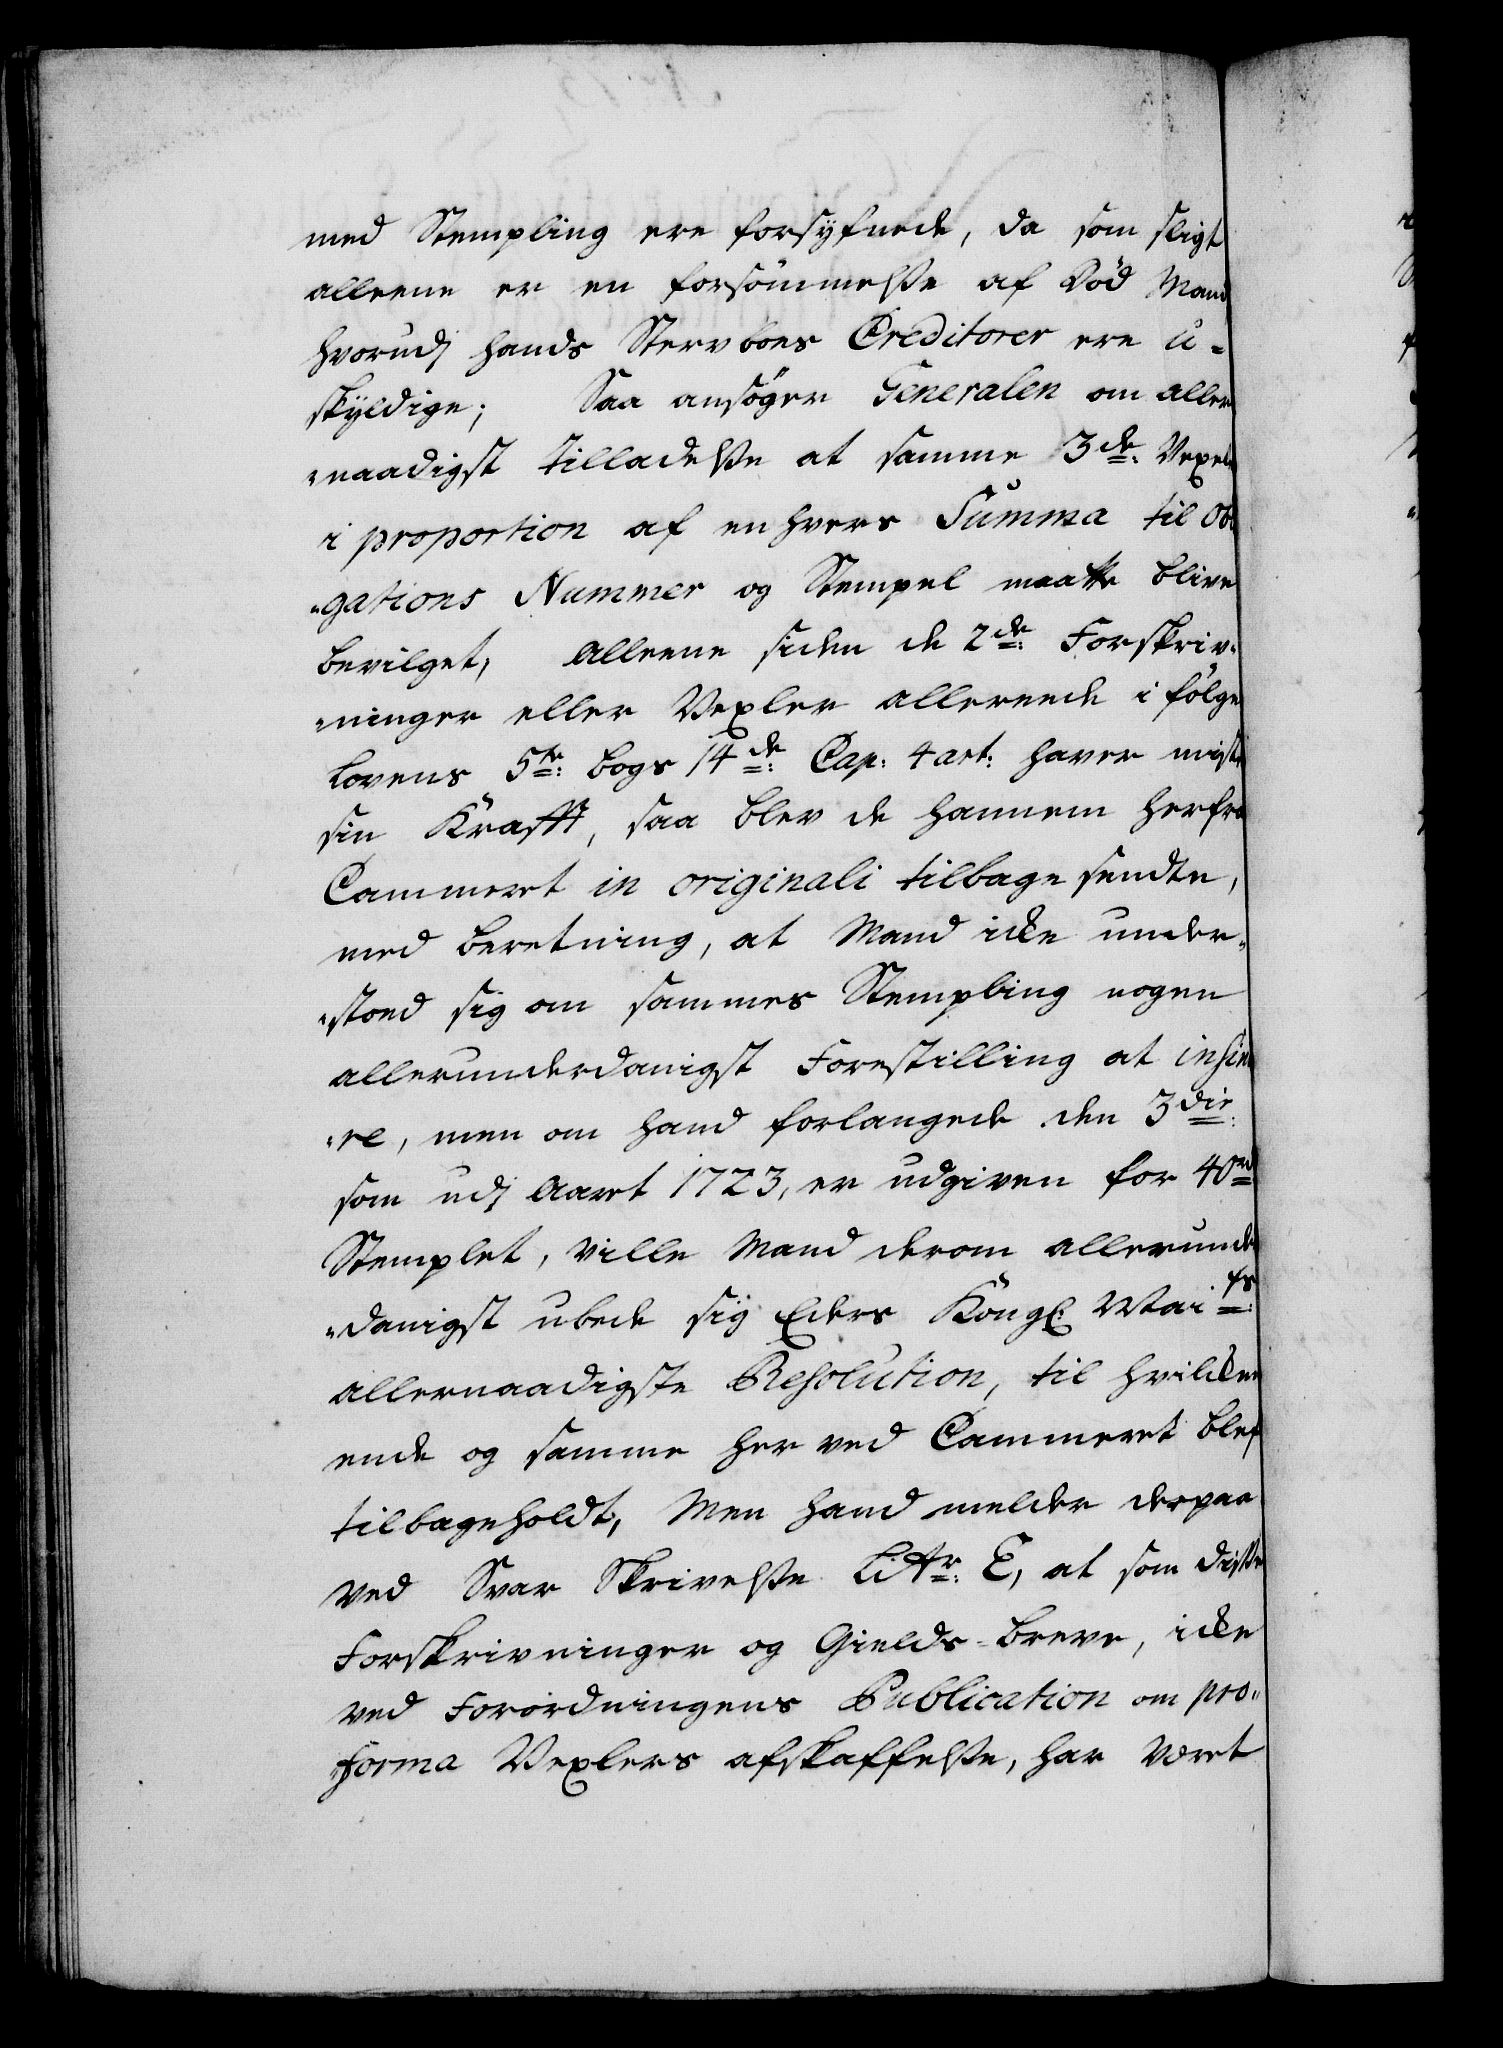 med Stempling ere forsÿfnede, da som sligt
alleene er en forsömmelsse af død Mand
hvorudj hands Sterv boes Creditorer ere u-
skÿldige; Saa ansöger Generalen om aller
„naadigst tilladelsse at samme 3de: Vexel
i proportion af en hvers Summa til Obli
„gations Nummer og Stempel maatte blive
bevilget, Alleene siden de 2de: Forskriv-
„ninger eller Vexler allereede i fölge
Lovens 5te: bogs 14de: Cap: 4 art: haver mist
sin Krafft, saa blev de hannem herfra
Cammeret in originali tilbage sendte,
med beretning, at Mand icke under„
„stoed sig om sammes Stempling nogen
allerunderdanigst Forestilling at insinue
„re, men om hand forlangede den 3die:
som udj Aaret 1723, er udgiven for 40 rd
Stemplet, ville Mand derom allerunder
„danigst ubede sig Eders Kongl: Mai ts:
allernaadigste Resolution, til hvilcken
ende og samme her ved Cammeret blef
tilbageholdt, Men hand melder derpaa
ved Svar Skrivelsse Littr: E, at som disse
Forskrivninger og Gields-breve, icke
ved Forordningens Publication om pro„
forma Vexlers afskaffelsse, har været